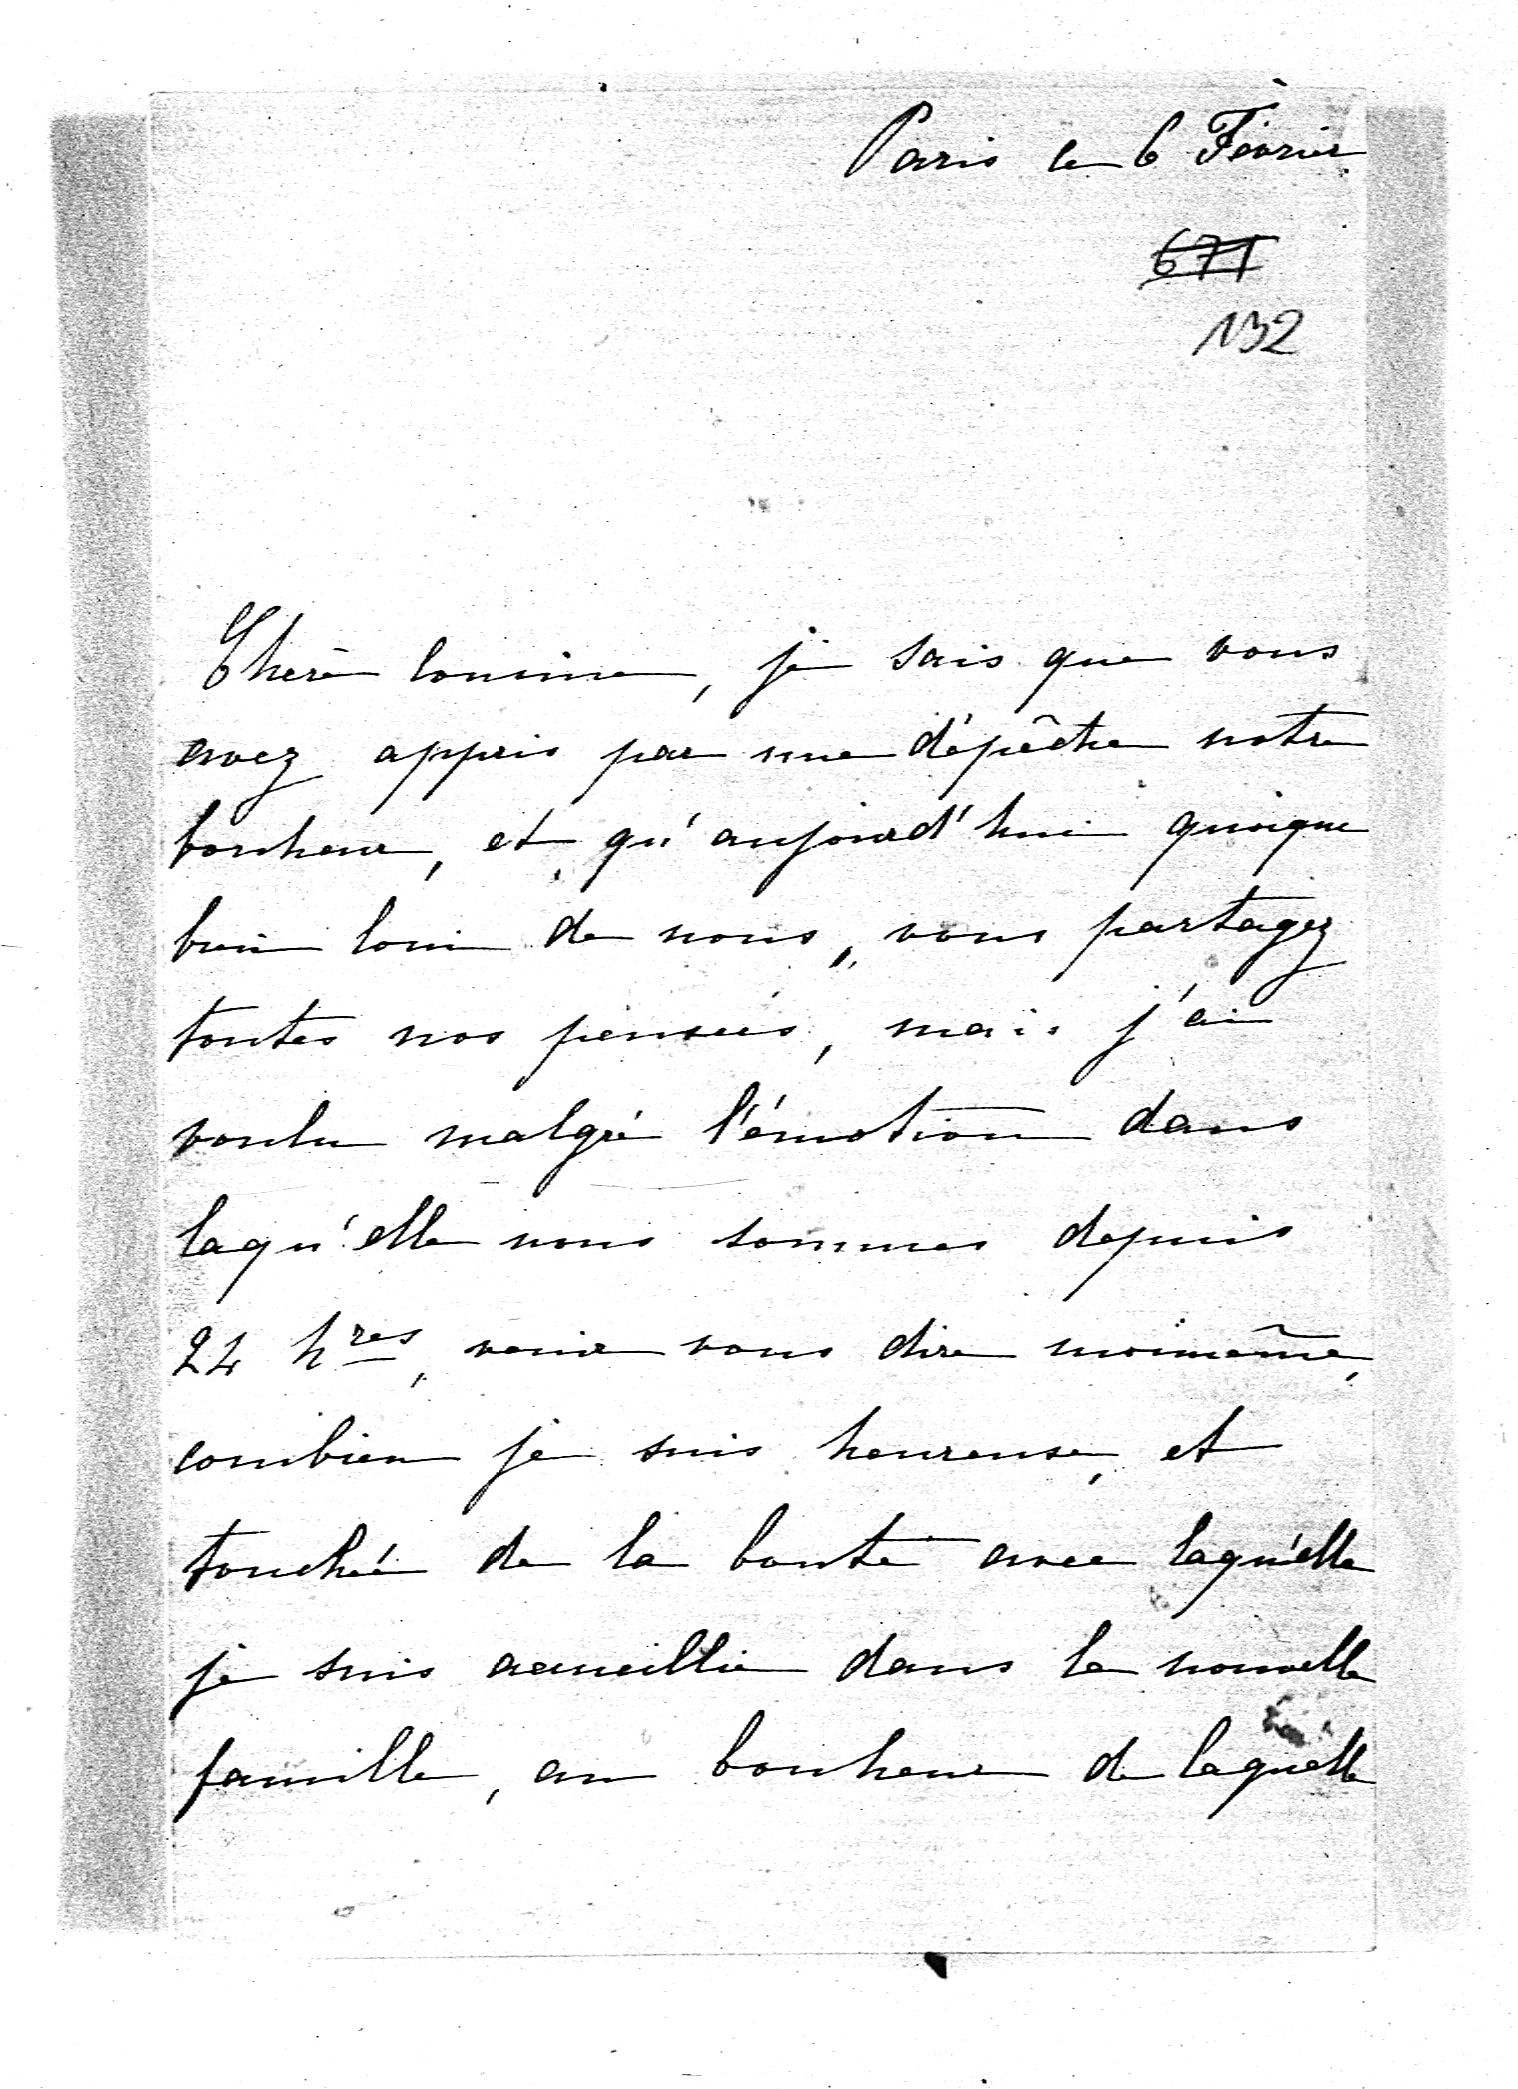 Paris le 6 Février
671
132
Chère Cousine, je sais que vous
avez appris par une dépêche notre
bonheur, et qu'aujourd'hui quoique
bien loin de nous, vous partagez
toutes nos pensées, mais j'ai
voulu malgré l'émotion dans
laqu'elle nous sommes depuis
24 hres, venir vous dire moimême,
combien je suis heureuse, et
touchée de la bonté avec laqu'elle
je suis accueillie dans la nouvelle
famille, au bonheur de laquelle